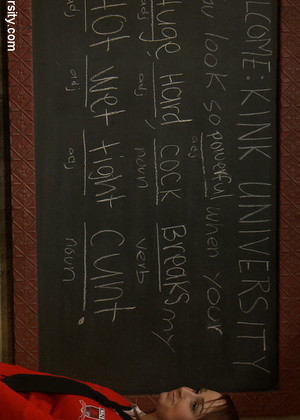 rsity.com
ELCOME: KINK UNIVERSITY
ou look so powerful when your
adj
Huge, Hard, cock Breaks my
adj adj noun verb
Hot wet tight cunt.
adj adj adj noun